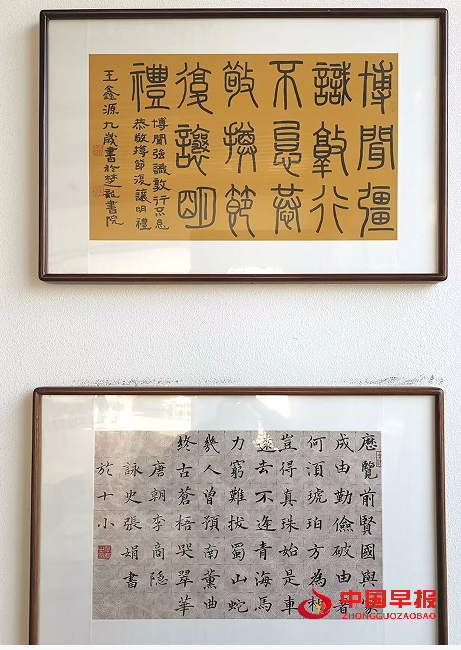 博聞彊
識敦行
不怠恭
敬撙節
復讓明
禮
博聞强識敦行不怠
恭敬撙節復讓明禮
王鑫源九歲書於楚書院
歷覽前賢國與家
成由勤儉破由奢
何須琥珀方為枕
豈得真珠始是車
遠去不逢青海馬
力窮難拔蜀山蛇
幾人曾預南薰曲
終古蒼梧哭翠華
唐朝李商隱
詠史張娟書
於十小
中国早报
ZHONGGUOZAOBAO